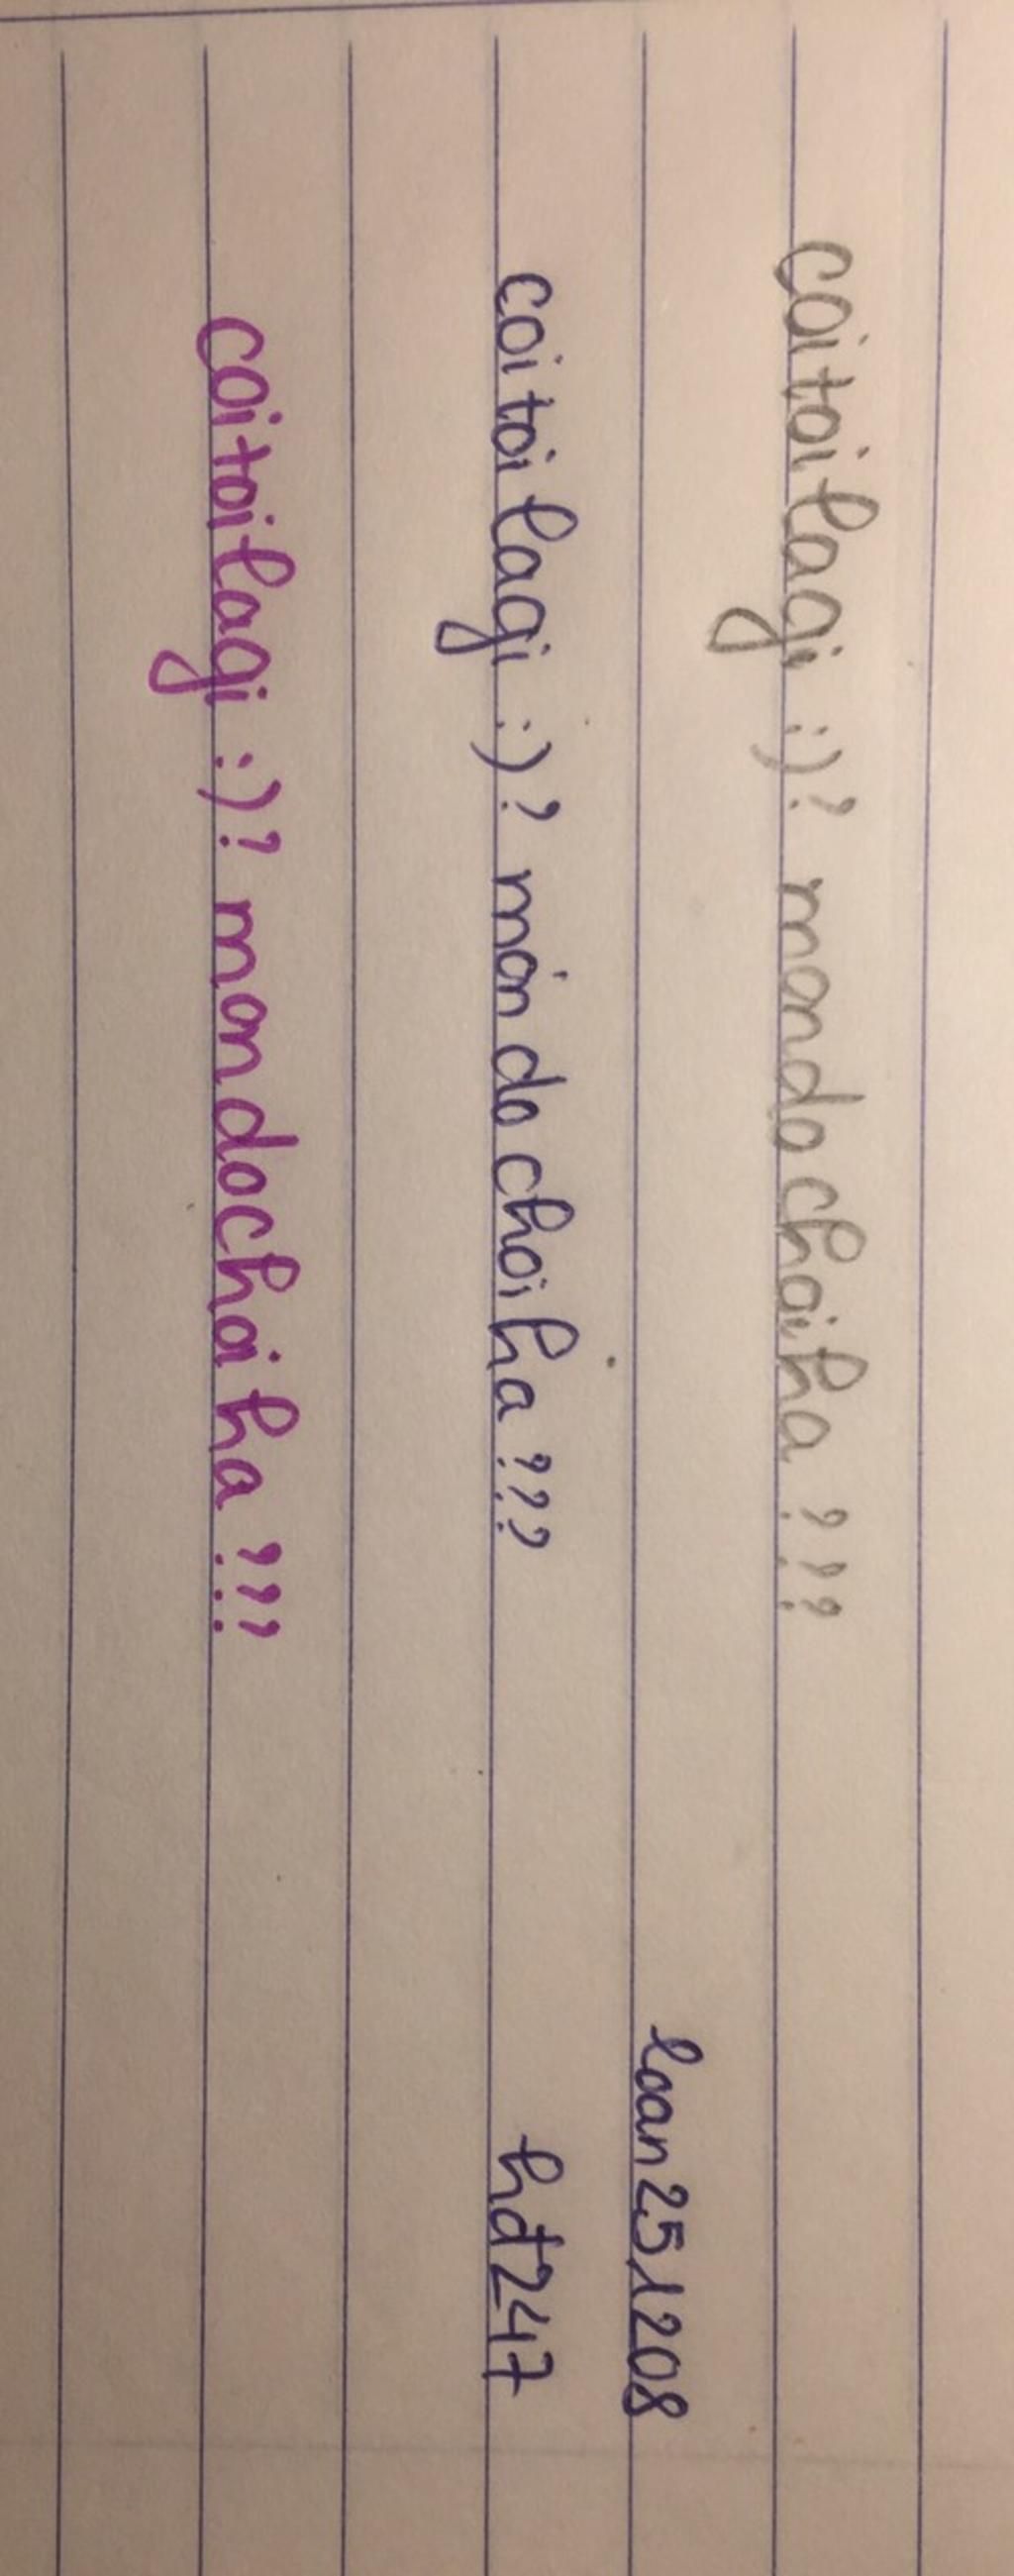 coitoilagi :)? mondochoiha ???
loan251208
coitoilagi :)? móndochoiha ???
hđ247
coitoilagi :)? mondochoiha ???